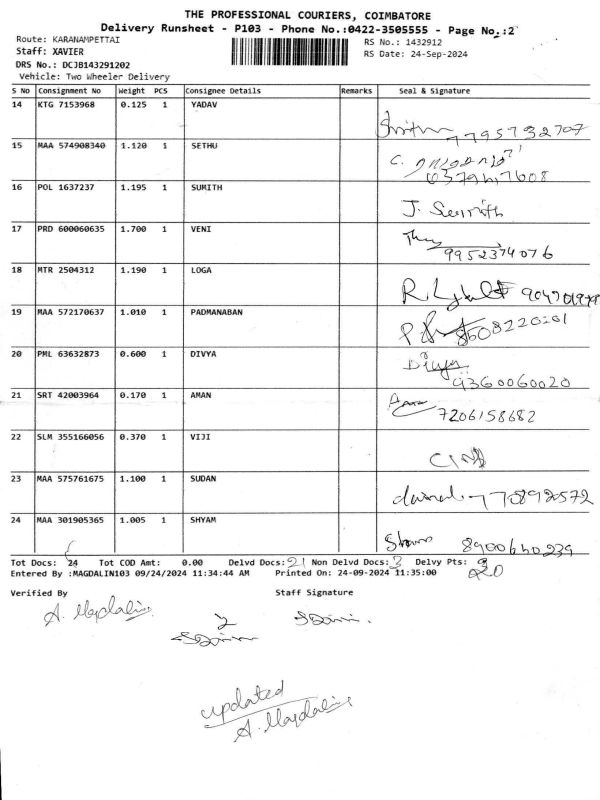 THE PROFESSIONAL COURIERS, COIMBATORE
Delivery Runsheet - P103 - Phone No.:0422-3505555 - Page No.:2
Route: KARANAMPETTAI
Staff: XAVIER
DRS No.: DCJB143291202
Vehicle: Two Wheeler Delivery
RS No.: 1432912
RS Date: 24-Sep-2024
S No Consignment No Weight PCS Consignee Details Remarks Seal & Signature
14 KTG 7153968 0.125 1 YADAV
7795732707
15 MAA 574908340 1.120 1 SETHU
C.
16 POL 1637237 1.195 1 SUMITH J. Sumith
17 PRD 600060635 1.700 1 VENI
9952374076
18 MTR 2504312 1.190 1 LOGA R.
19 MAA 572170637 1.010 1 PADMANABAN
20 PML 63632873 0.600 1 DIVYA Divya
9360060020
21 SRT 42003964 0.170 1 AMAN
7206158682
22 SLM 355166056 0.370 1 VIJI
23 MAA 575761675 1.100 1 SUDAN
24 MAA 301905365 1.005 1 SHYAM
Tot Docs: 24 Tot COD Amt: 0.00 Delvd Docs: 21 Non Delvd Docs: 3 Delvy Pts:
20
Entered By :MAGDALIN103 09/24/2024 11:34:44 AM Printed On: 24-09-2024 11:35:00
Verified By Staff Signature
A. Magdalin
updated
A. Magdalin